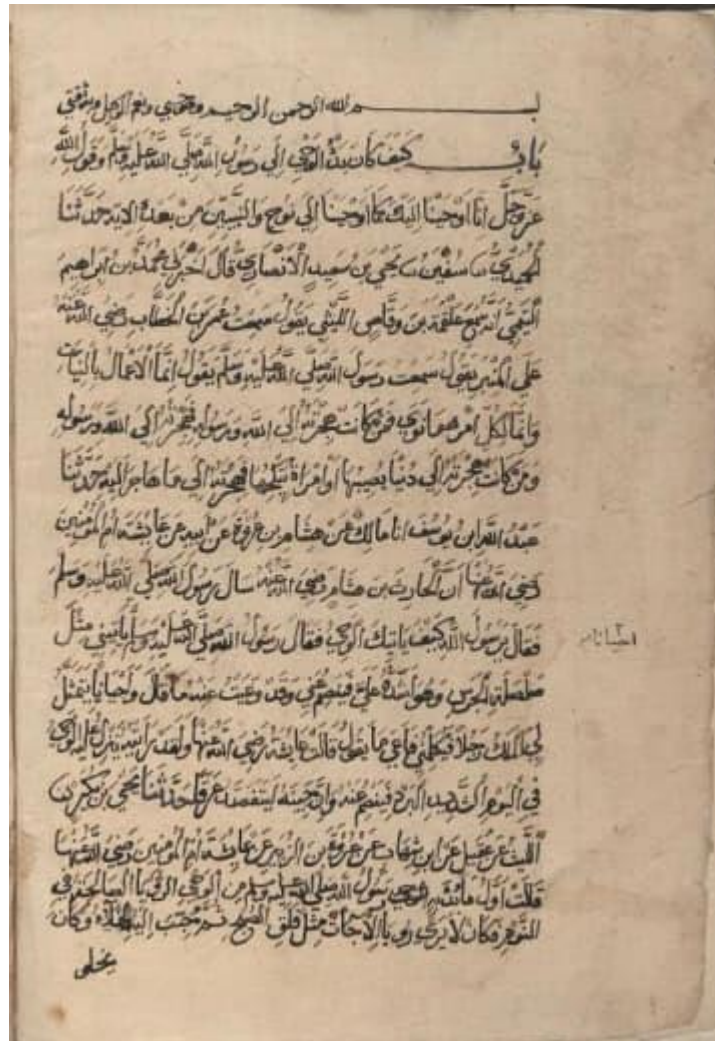 بسم الله الرحمن الرحيم وهو حسبي ونعم الوكيل وبه ثقتي
باب كيف كان بدؤ الوحي الى رسول الله صلى الله عليه وسلم وقول الله
عز وجل انا اوحينا اليك كما اوحينا الى نوح والنبيين من بعده الاية حدثنا
الحميدي نا سفين نا يحيى بن سعيد الانصاري قال اخبرني محمد بن ابراهيم
التيمي انه سمع علقمة بن وقاص الليثي يقول سمعت عمر بن الخطاب رضي الله عنه
على المنبر يقول سمعت رسول الله صلى الله عليه وسلم يقول انما الاعمال بالنيات
وانما لكل امرء ما نوى فمن كانت هجرته الى الله ورسوله فهجرته الى الله ورسوله
ومن كانت هجرته الى دنيا يصيبها او امراة ينكحها فهجرته الى ما هاجر اليه حدثنا
عبد الله ابن يوسف انا مالك عن هشام بن عروة عن ابيه عن عايشة ام المؤمنين
رضي الله عنها ان الحارث بن هشام رضي الله عنه سال رسول الله صلى الله عليه وسلم
فقال يرسول الله كيف ياتيك الوحي فقال رسول الله صلى الله عليه وسلم ياتيني مثل
احيانا
صلصلة الجرس وهو اشده علي فيفصم عني وقد وعيت عنه ما قال واحيانا يتمثل
لي الملك رجلا فيكلمني فاعي ما يقول قالت عايشة رضي الله عنها ولقد رايته ينزل عليه الوحي
في اليوم الشديد البرد فيفصم عنه وان جبينه ليتفصد عرقا حدثنا يحيى بن بكير نا
الليث عن عقيل عن ابن شهاب عن عروة بن الزبير عن عايشة ام المؤمنين رضي الله عنها
قالت اول ما بدئ به رسول الله صلى الله عليه وسلم من الوحي الرؤيا الصالحة في
النوم فكان لا يرى رويا الا جات مثل فلق الصبح ثم حبب اليه الخلاء وكان
يخلو